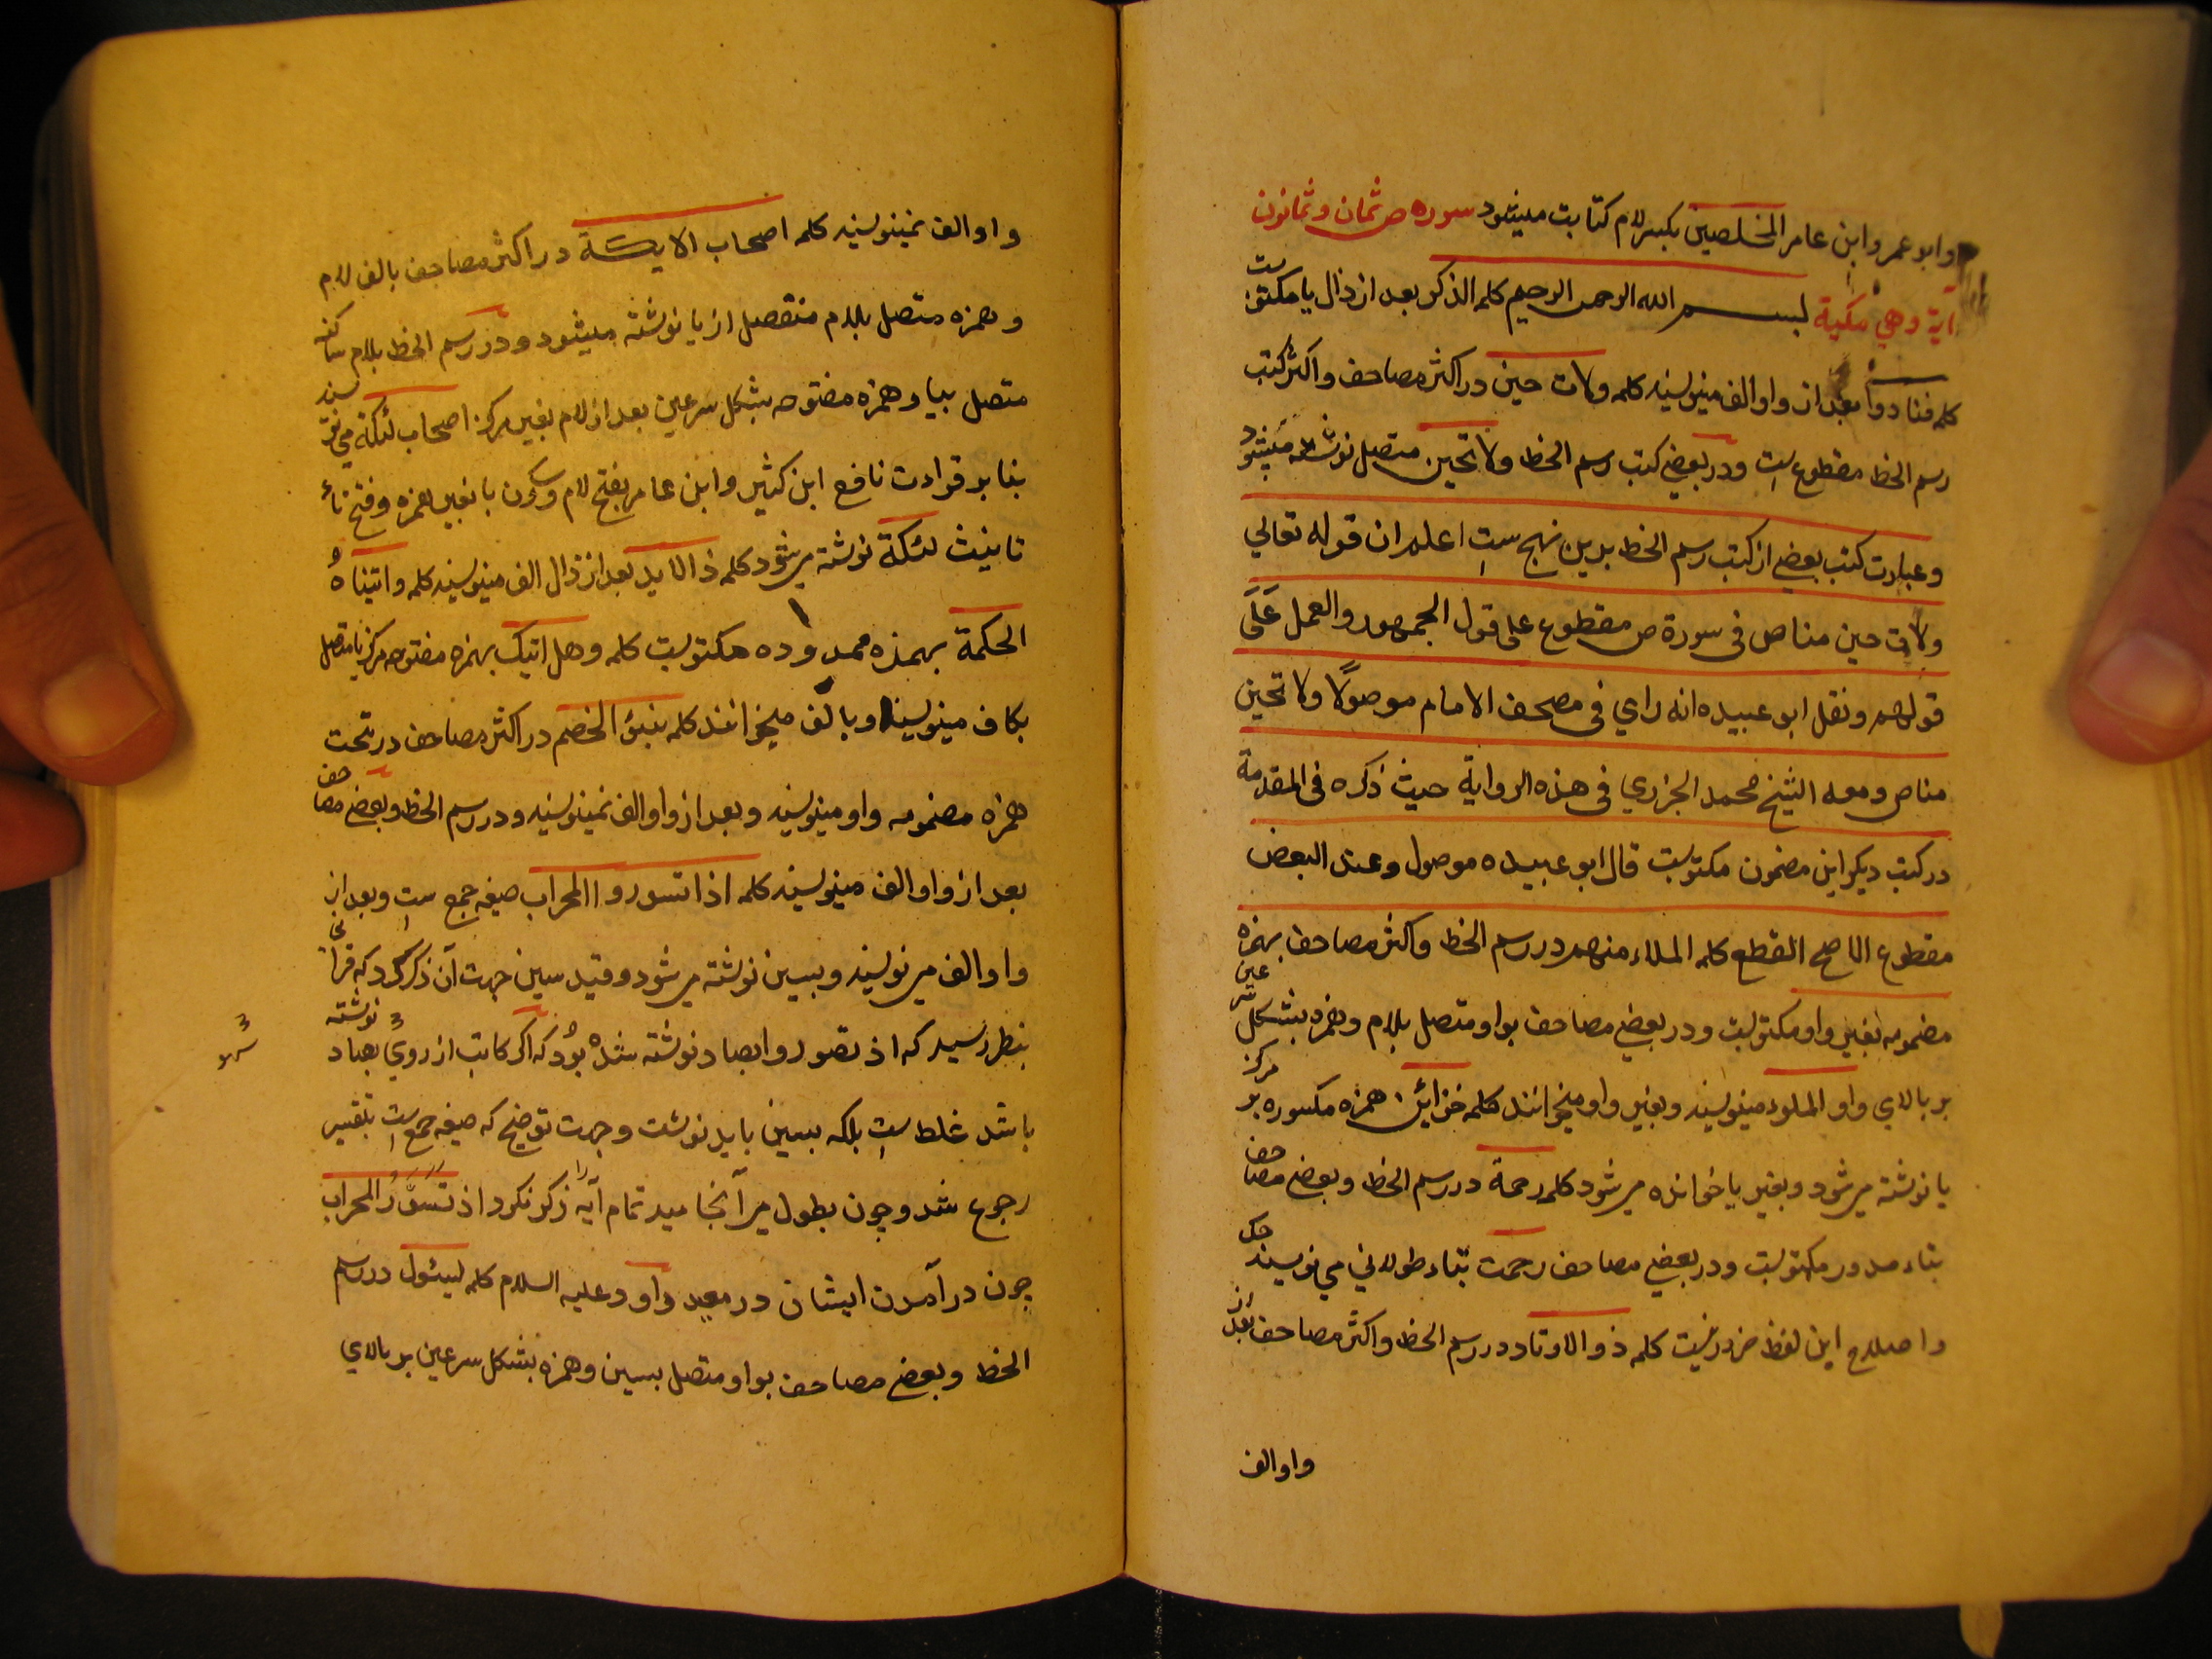 وابو عمرو ابن عامر المخلصین بکسر لام کتابت میشود سوره ص ثمان و ثمانون
ایة وهی مکیة بسم الله الرحمن الرحیم کلمه الذکر بعد از ذال یا مکتوبست
کلمه فنادوا بعد از واو الف مینویسند کلمه ولات حین در اکثر مصاحف و اکثر کتب
رسم الخط مقطوع است ودر بعضی کتب رسم الخط ولا تحین متصل نوشته میشود
وعبارت کتب بعضی از کتب رسم الخط بدین نهج ست اعلم ان قوله تعالی
ولات حین مناص فی سورة ص مقطوع علی قول الجمهور والعمل عَلَی
قولهم ونقل ابو عبیده انه رای فی مصحف الامام موصولًا ولا تحین
مناص ومعه الشیخ محمد الجزری فی هذه الروایة حیث ذکره فی المقدمة
در کتب دیکر این مضمون مکتوبست قال ابو عبیده موصول وعند البعض
مقطوع الاصح القطع کلمه الملاء منهم در رسم الخط واکثر مصاحف بهمزه
مضمومه بغیر واو مکتوبست ودر بعضی مصاحف بواو متصل بلام وهمزه بشکل سر عین
بر بالای واو الملوء مینویسند وبغیر واو میخوانند کلمه خزائن همزه مکسوره بر مرکز
یا نوشته میشود وبغیر یا خوانده میشود کلمه رحمة در رسم الخط وبعضی مصاحف
بتاء مدور مکتوبست ودر بعضی مصاحف رحمت بتاء طولانی می نویسند حک
واصلاح این لفظ ضرور نیست کلمه ذو الاوتاد در رسم الخط واکثر مصاحف بعد از
واو الف
واو الف نمینویسند کلمه اصحاب الایکة در اکثر مصاحف بالف لام
وهمزه متصل بلام منفصل از یا نوشته میشود ودر رسم الخط بلام ساکنه
متصل بیا وهمزه مفتوحه بشکل سرعین بعد از لام بغیر مرکز اصحاب لئیکة می نویسند
بنابر قراءت نافع ابن کثیر وابن عامر بفتح لام وسکون یا بغیر همزه وفتح تاء
تانیث لئیکة نوشته میشود کلمه ذا الاید بعد از ذال الف مینویسند کلمه واتیناه
الحکمة بهمزه ممدوده مکتوبست کلمه وهل اتیک بهمزه مفتوحه مرکز یا متصل
بکاف مینویسند وبالف میخوانند کلمه نبؤ الخصم در اکثر مصاحف در تحت
همزه مضمومه واو مینویسند وبعد از واو الف نمینویسند ودر رسم الخط وبعضی مصاحف
بعد از واو الف مینویسند کلمه اذ تسوروا المحراب صیغه جمع ست وبعد از
واو الف می نویسند وبسین نوشته میشود وقید سین جهت آن ذکر کرد که قرآنی
بنظر رسید که اذ تصوروا بصاد نوشته شده بود که اکر کاتب از روی بصاد نوشته
باشد غلط است بلکه بسین باید نوشت وجهت توضیح که صیغه جمع است بتفسیر
رجوع شد وچون بطول می آنجامید تمام آیه را ذکر نکرد اذ تَسَوَّرُ المحراب
چون در آمدن ایشان در معبد داود علیه السلام کلمه لیسئول در رسم
الخط وبعضی مصاحف بواو متصل بسین وهمزه بشکل سرعین بر بالای